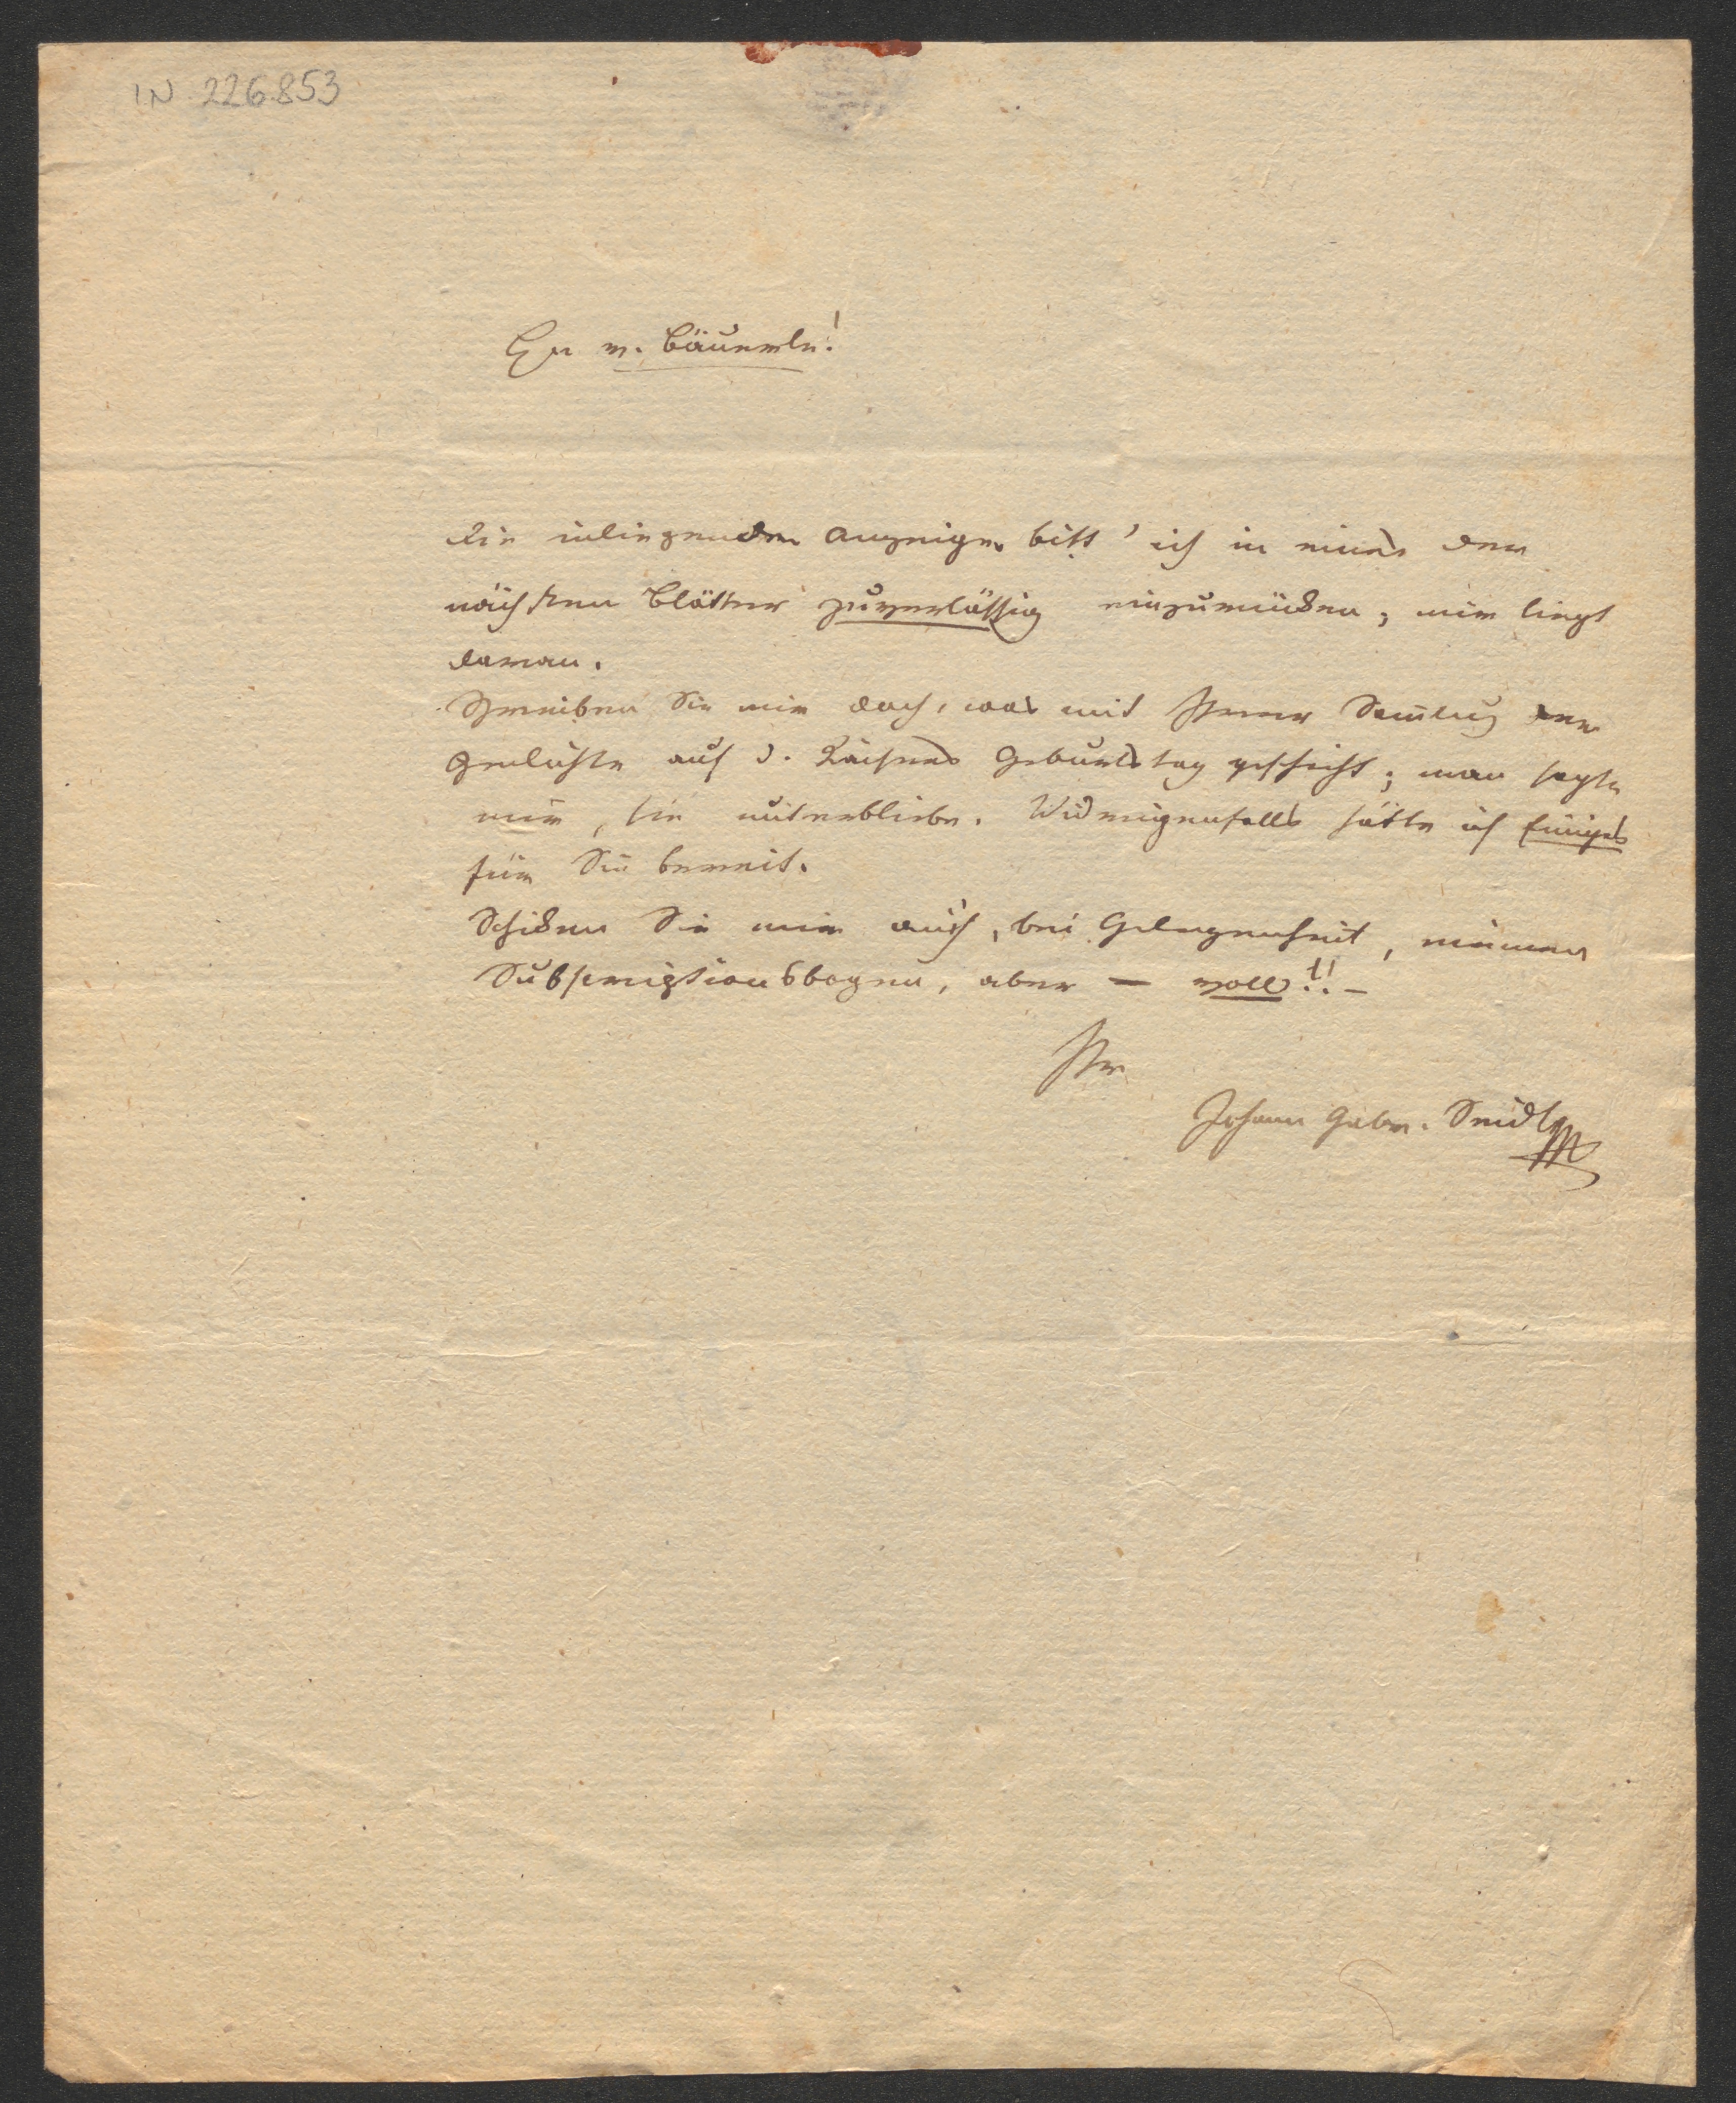 IN 226.853
Hr v. Bäuerle!
Die inliegenden Anzeigen bitt' ich in eines der
nächsten Blätter zuverlässig einzurücken; mir liegt
daran.
Schreiben Sie mir doch, was mit Ihrer Samlug der
Gedichte auf d. Kaisers Geburtstag geschieht; man sagte
mir, sie unterbliebe. Widrigenfalls hätte ich Einiges
für Sie bereit.
Schiken Sie mir auch, bei Gelegenheit, meinen
Subscriptionsbogen, aber — voll!! —
Ihr
Johann Gabr. Seidl